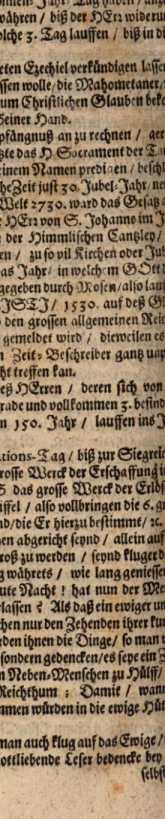 währen / biß der HErr widerum
solche 3. Tag lauffen / biß in di
eten Ezechiel verkündigen lassen
ssen wolle / die Mahometaner /
zum Christlichen Glauben beke
Seiner Hand.
pfängnuß an zu rechnen / ger
zte das H. Sacrament der Ta
inem Namen predigen / beschl
he Zeit just 30. Jubel-Jahr / nu
Welt 2730. ward das Gesatz
HErr von S. Johanne im J
der Himmlischen Cantzley /
en / zu so vil Kirchen oder Jub
as Jahr / in welchem GOtt
gegeben durch Mosen / also lauf
JSTJ / 1530. auf deß Gl
den grossen allgemeinen Reic
gemeldet wird / dieweilen es
n Zeit-Beschreiber gantz una
cht treffen kan.
eß HErren / deren sich von
rade und vollkommen 3. befind
n 150. Jahr / lauffen ins J
tions-Tag / biß zur Siegreich
rosse Werck der Erschaffung
S das grosse Werck der Erlös
iffel / also vollbringen die 6. gr
nd / die Er hierzu bestimmte / ꝛc.
en abgericht seynd / allein auf
roß zu werden / seynd kluger d
g währets / wie lang geniessen
ute Nacht ! hat nun der Me
lassen ? Als daß ein ewiger un
chen nur den Zehenden ihrer kur
den ihnen die Dinge / so man
sondern gedencken / es seye ein Z
n Neben-Menschen zu Hülff /
Reichthum ; Damit / wan
mmen würden in die ewige Hüt
man auch klug auf das Ewige /
ottliebende Leser bedencke bey
selbst